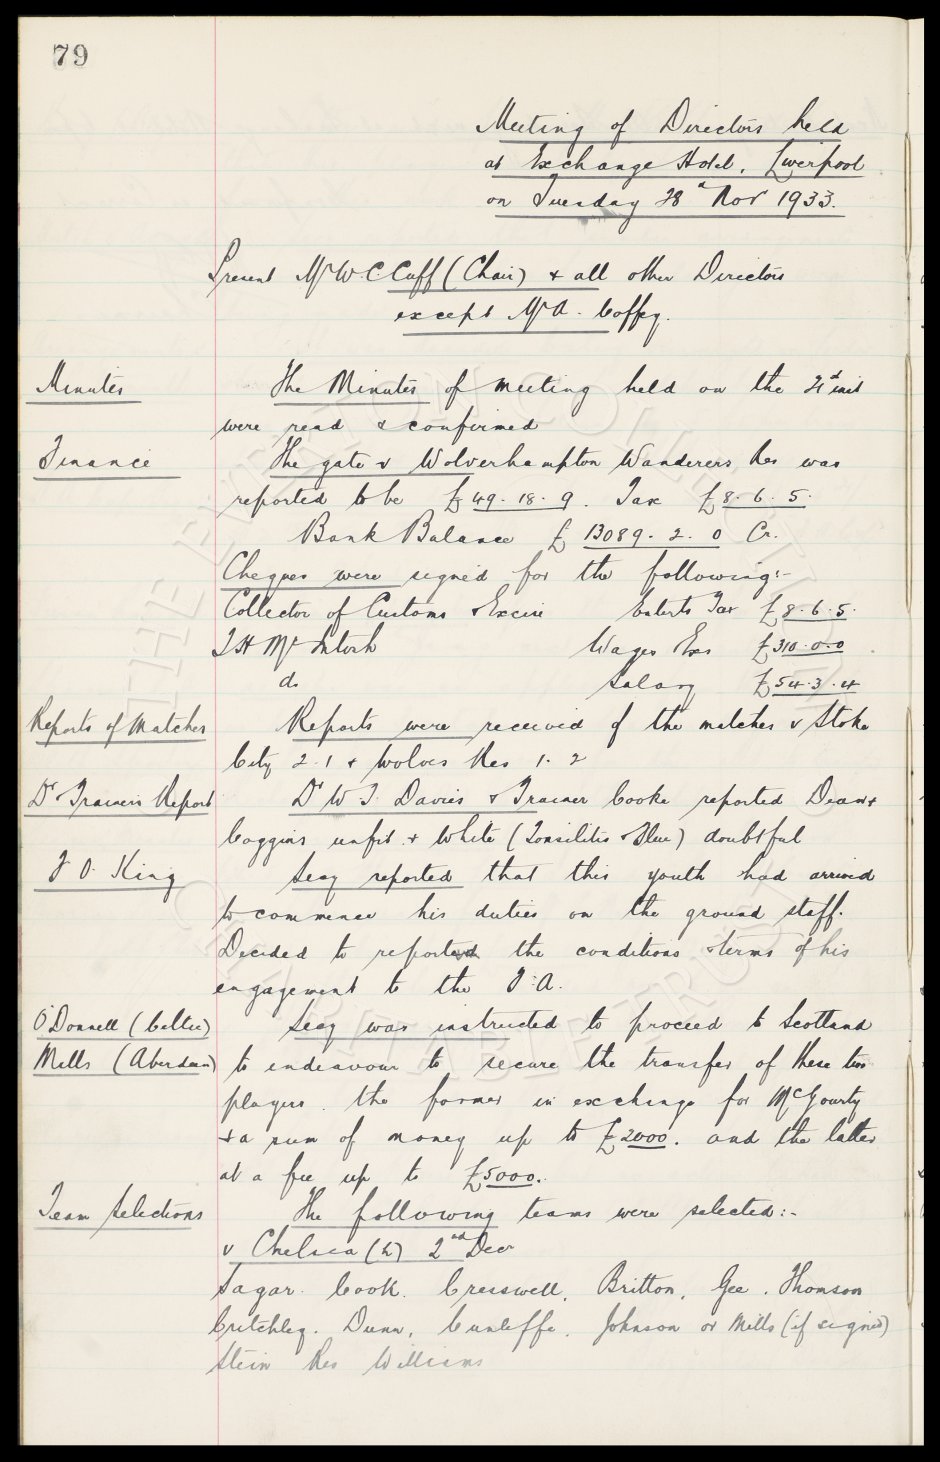 79
Meeting of Directors held
at Exchange Hotel, Liverpool
on Tuesday 28th Nov 1933.
Present Mr W.C. Cuff (Chair) & all other Directors
except Mr A. Coffey.
Minutes The Minutes of meeting held on the 21st inst
were read & confirmed
Finance The gate v Wolverhampton Wanderers Res was
reported to be £49.18.9. Tax £8.6.5.
Bank Balance £13089.2.0 Cr.
Cheques were signed for the following:-
Collector of Customs & Excise Enterts Tax £8.6.5.
T H McIntosh Wages Exs £310.0.0
do Salary £54.3.4
Reports of Matches Reports were received of the matches v Stoke
City 2.1 & Wolves Res 1.2
Dr & Trainers Report Dr W.T. Davies & Trainer Cooke reported Dean &
Coggins unfit & White (Tonsilitis & Flue) doubtful
F O. King Secy reported that this youth had arrived
to commence his duties on the ground staff.
Decided to report the conditions & terms of his
engagement to the F.A.
O'Donnell (Celtic) Secy was instructed to proceed to Scotland
Mills (Aberdeen) to endeavour to secure the transfer of these two
players. the former in exchange for McGourty
& a sum of money up to £2000. and the latter
at a fee up to £5000.
Team Selections The following teams were selected:-
v Chelsea (h) 2nd Dec
Sagar. Cook. Cresswell, Britton, Gee, Thomson
Critchley. Dunn, Cunliffe, Johnson or Mills (if signed)
Stein Res Williams
THE EVERTON COLLECTION
CHARITABLE TRUST